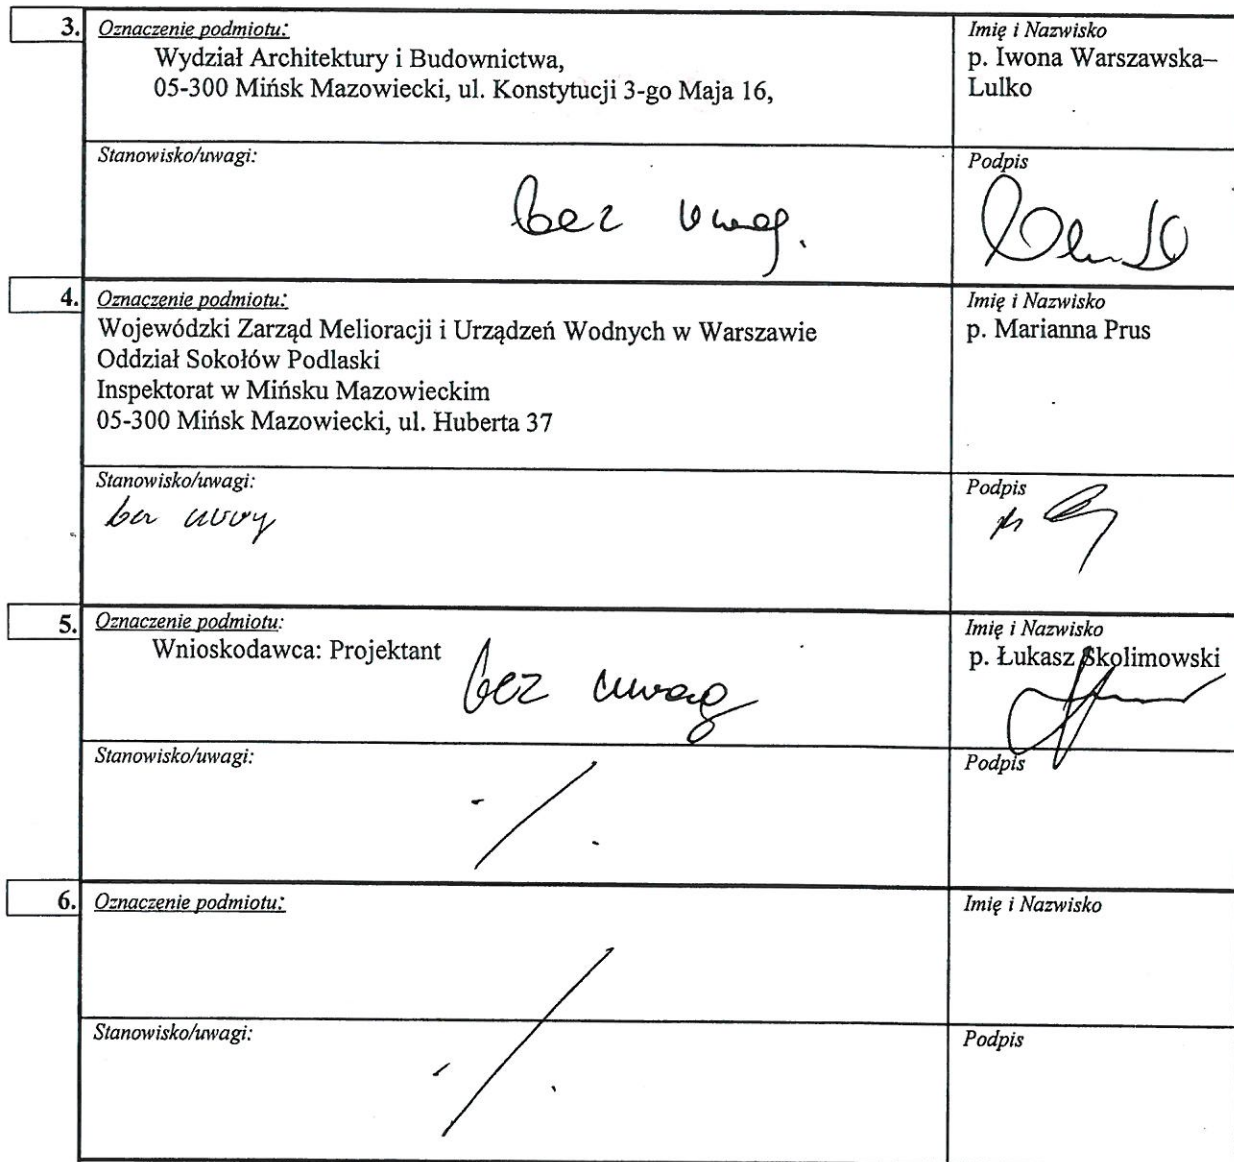 3.
Oznaczenie podmiotu:
Wydział Architektury i Budownictwa,
05-300 Mińsk Mazowiecki, ul. Konstytucji 3-go Maja 16,
Imię i Nazwisko
p. Iwona Warszawska–
Lulko
Stanowisko/uwagi:
bez uwag.
Podpis
4.
Oznaczenie podmiotu:
Wojewódzki Zarząd Melioracji i Urządzeń Wodnych w Warszawie
Oddział Sokołów Podlaski
Inspektorat w Mińsku Mazowieckim
05-300 Mińsk Mazowiecki, ul. Huberta 37
Imię i Nazwisko
p. Marianna Prus
Stanowisko/uwagi:
bez uwag
Podpis
5.
Oznaczenie podmiotu:
Wnioskodawca: Projektant
bez uwag
Imię i Nazwisko
p. Łukasz Skolimowski
Stanowisko/uwagi:
Podpis
6.
Oznaczenie podmiotu:
Imię i Nazwisko
Stanowisko/uwagi:
Podpis